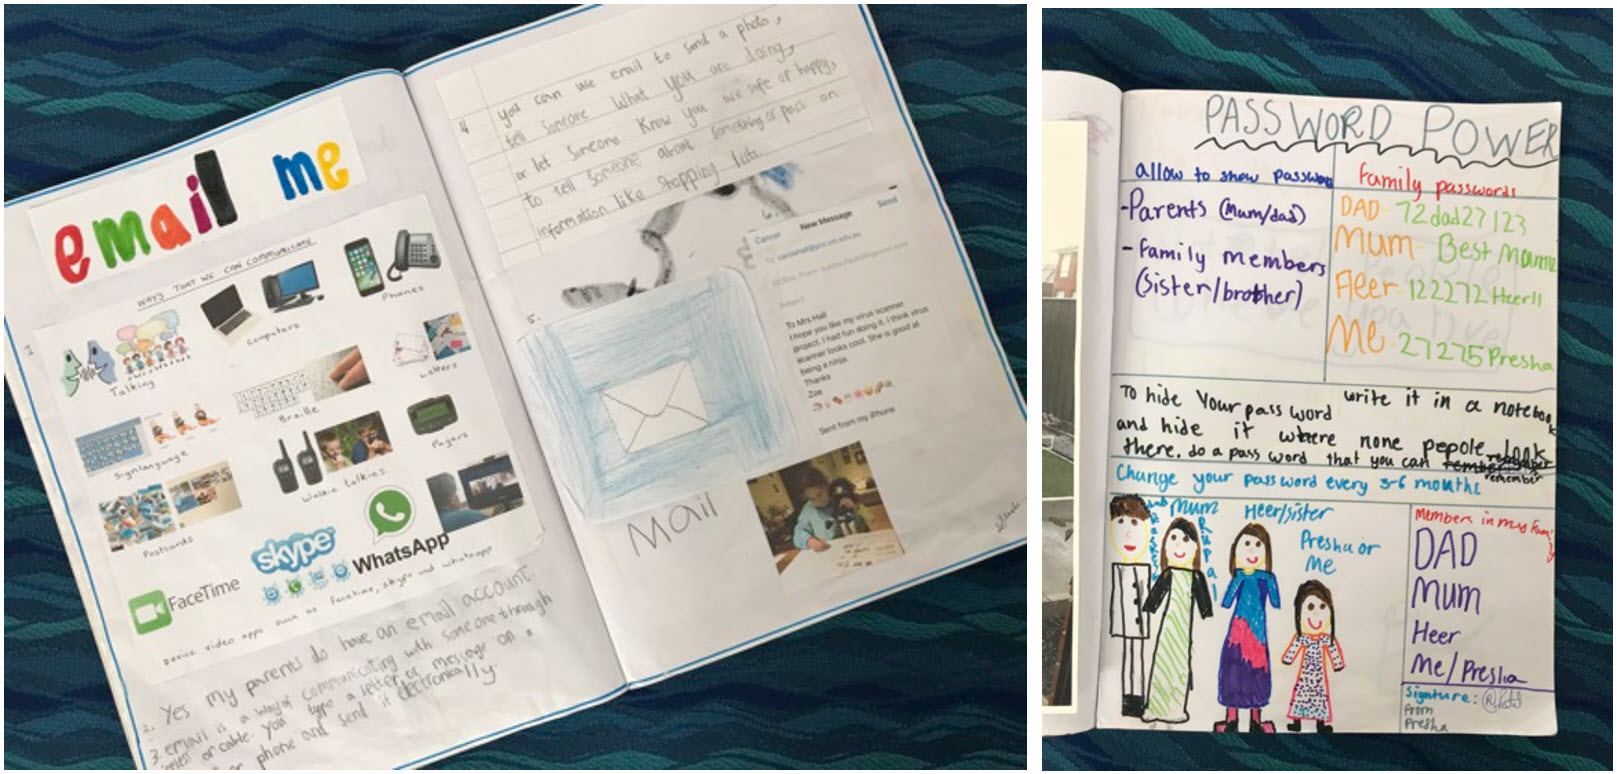 email me
WAYS THAT WE CAN COMMUNICATE
1
Talking
Computers
Phones
Letters
Braille
Sign language
Walkie talkies
Pagers
Postcards
skype
WhatsApp
FaceTime
Device video apps such as facetime, skype and whatsapp
2. Yes my parents do have an email account.
3. email is a way of communicating with someone through
or cable. you type a letter or message on a
phone and send it electronically
4 you can use email to send a photo,
tell someone what you are doing,
or let someone know you are safe or happy,
to tell someone about something or pass on
information like shopping lists.
5.
Mail
6.
Cancel New Message Send
To:
Subject:
To Mrs Hall
I hope you like my virus scanner
project. I had fun doing it. I think virus
scanner looks cool. She is good at
being a ninja.
Thanks
Zoe
Sent from my iPhone
PASSWORD POWER
allow to show passwor
-Parents (Mum/dad)
- Family members
(sister/brother)
Family passwords
DAD- 72dad27123
Mum- Best Mumm
Heer- 122272Heer11
Me- 27275Presha
To hide Your pass word write it in a notebook
and hide it where none pepole look
there. do a pass word that you can
remember
Change your password every 3-6 months
dad
Mum
RUPAL
Heer/sister
Presha or
Me
Members in my Family
DAD
Mum
Heer
Me/Presha
Signature:
From
Presha